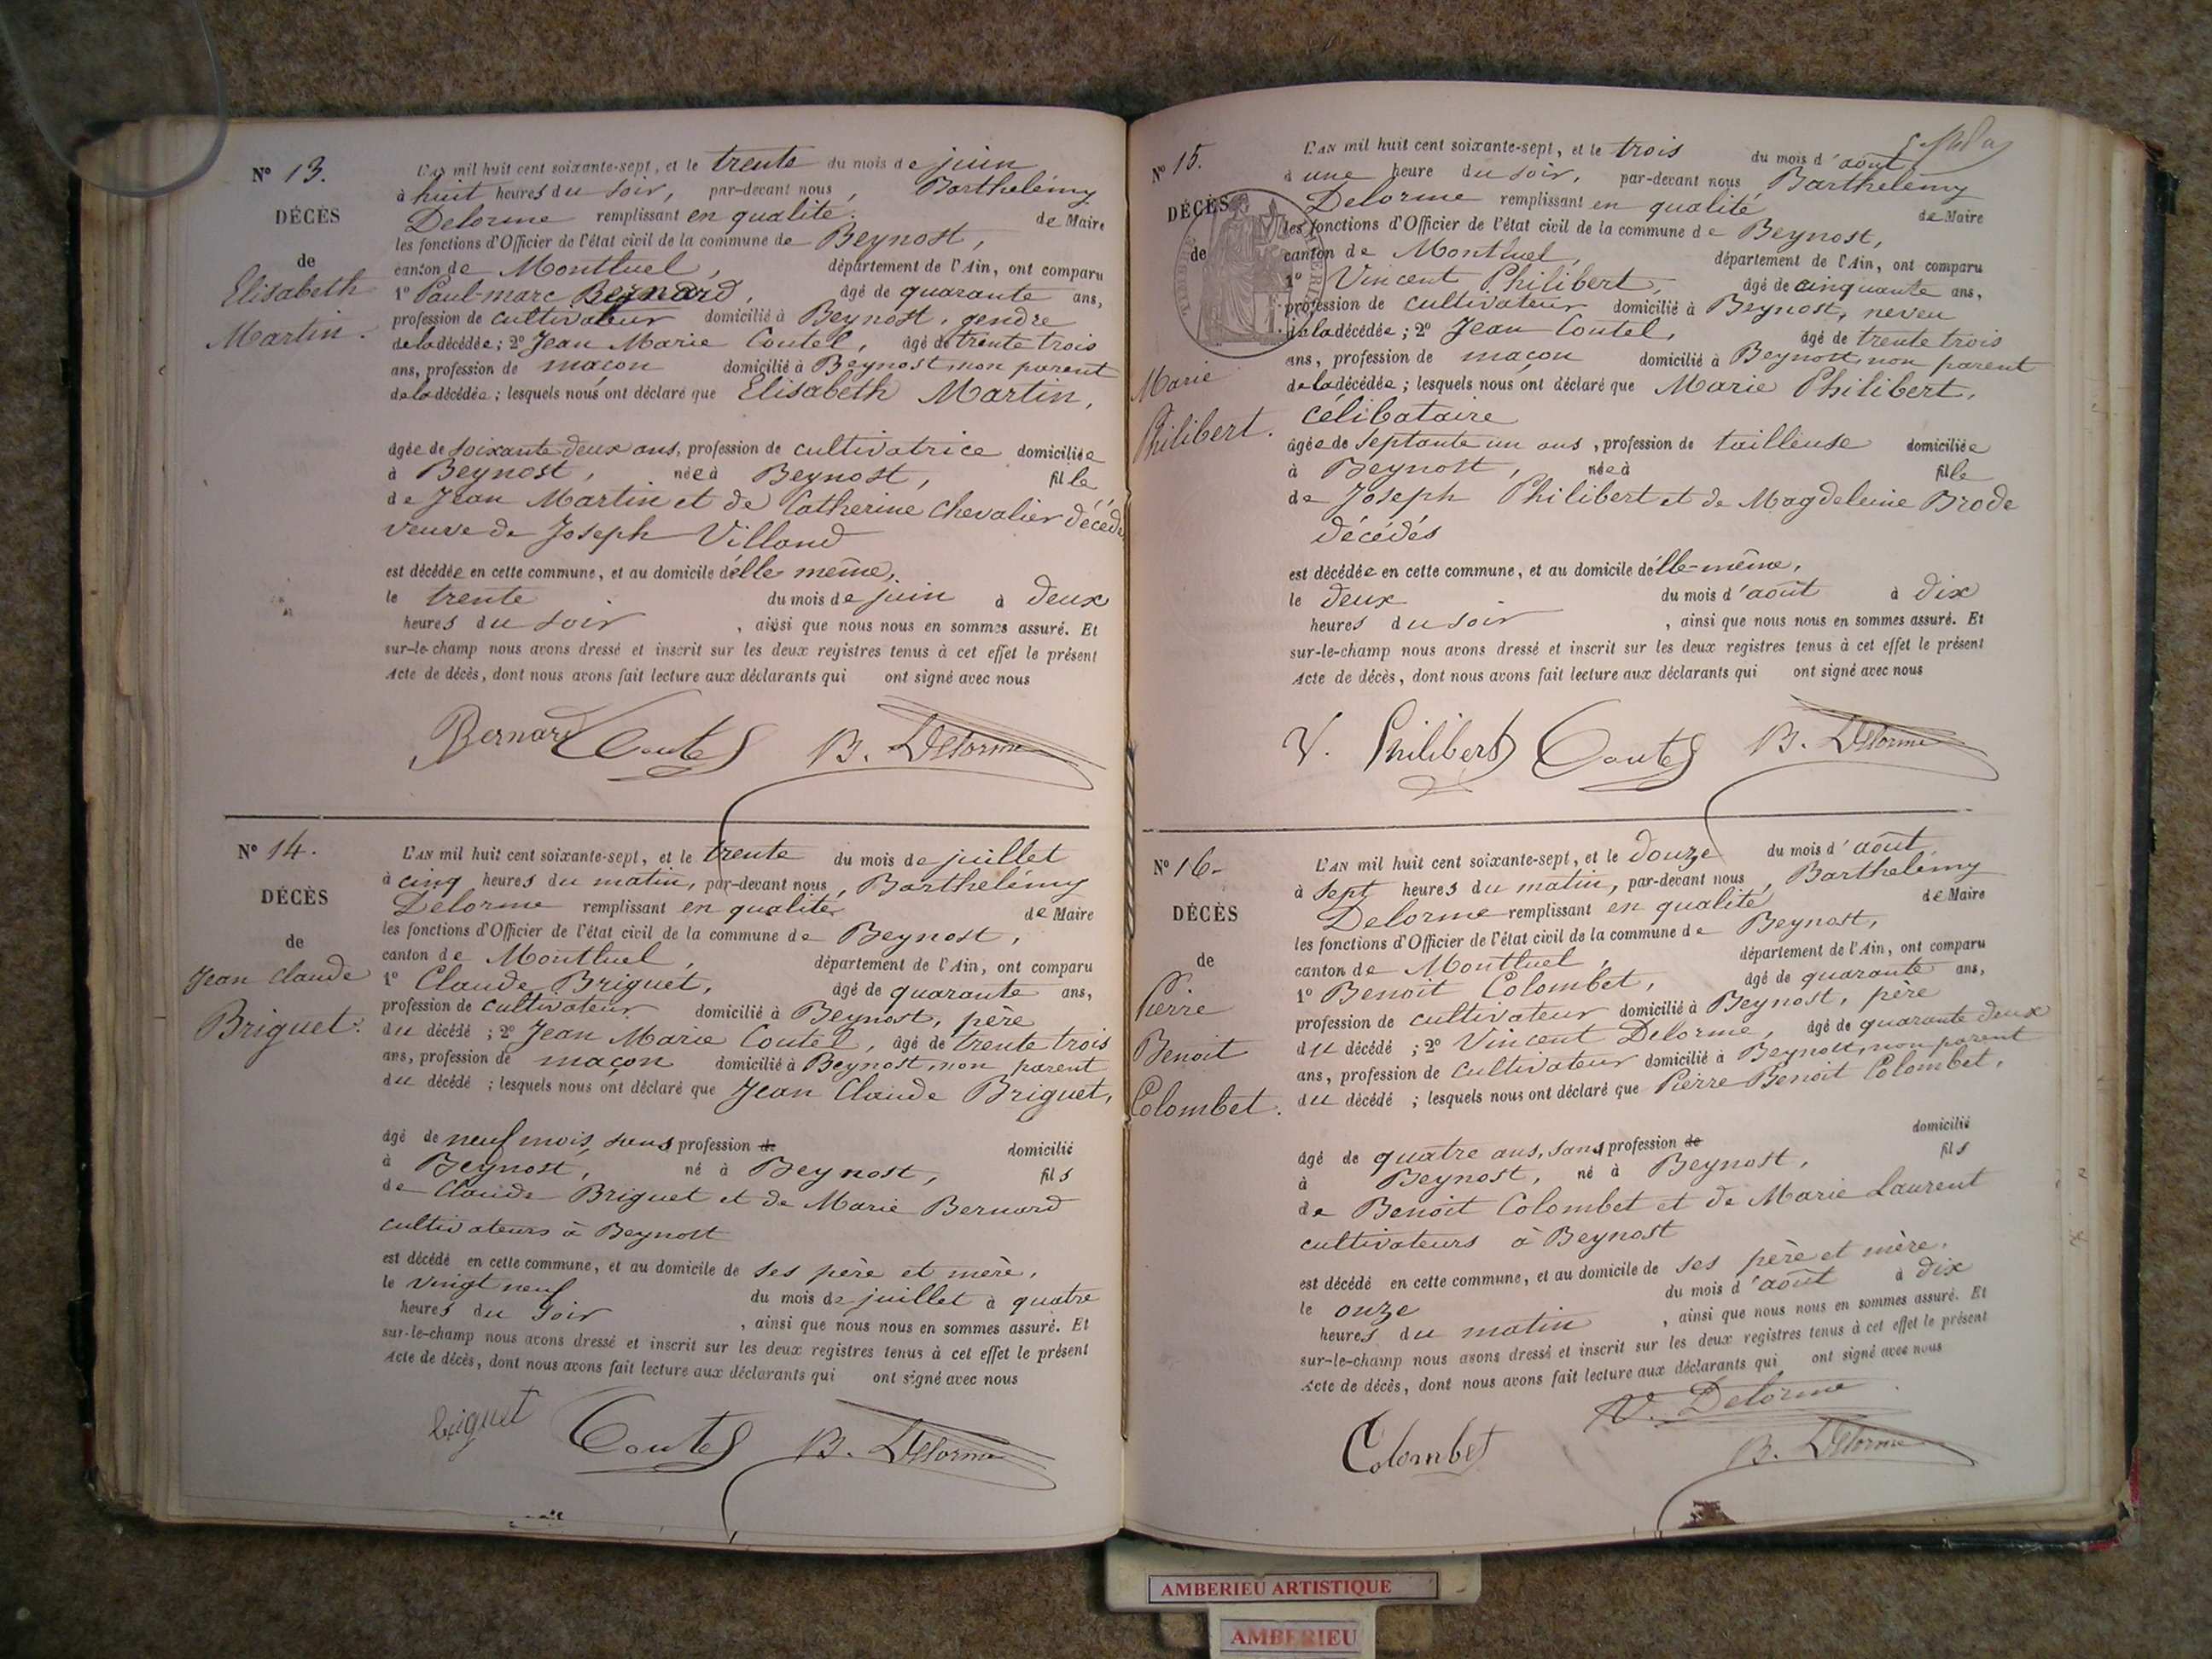 N° 13.
DÉCÈS
de
Elisabeth
Martin.
L'AN mil huit cent soixante-sept, et le trente du mois de juin
à huit heures du soir, par-devant nous, Barthelémy
Delorme remplissant en qualité de Maire
les fonctions d'Officier de l'état civil de la commune de Beynost,
canton de Montluel, département de l'Ain, ont comparu
1° Paul-marc Bernard, âgé de quarante ans,
profession de cultivateur domicilié à Beynost, gendre
de la décédée; 2° Jean Marie Coutel, âgé de trente trois
ans, profession de maçon domicilié à Beynost, non parent
de la décédée; lesquels nous ont déclaré que Elisabeth Martin,
âgée de soixante deux ans, profession de cultivatrice domiciliée
à Beynost, née à Beynost, fille
de Jean Martin et de Catherine Chevalier décédés
veuve de Joseph Villand
est décédée en cette commune, et au domicile d'elle même,
le trente du mois de juin à deux
heures du soir, ainsi que nous nous en sommes assuré. Et
sur-le-champ nous avons dressé et inscrit sur les deux registres tenus à cet effet le présent
Acte de décès, dont nous avons fait lecture aux déclarants qui ont signé avec nous
Bernard Coutel B. Delorme
N° 14.
DÉCÈS
de
Jean Claude
Briguet.
L'AN mil huit cent soixante-sept, et le trente du mois de juillet
à cinq heures du matin, par-devant nous, Barthelémy
Delorme remplissant en qualité de Maire
les fonctions d'Officier de l'état civil de la commune de Beynost,
canton de Montluel, département de l'Ain, ont comparu
1° Claude Briguet, âgé de quarante ans,
profession de cultivateur domicilié à Beynost, père
du décédé; 2° Jean Marie Coutel, âgé de trente trois
ans, profession de maçon domicilié à Beynost, non parent
du décédé; lesquels nous ont déclaré que Jean Claude Briguet,
âgé de neuf mois, sans profession de domicilié
à Beynost, né à Beynost, fils
de Claude Briguet et de Marie Bernard
cultivateurs à Beynost
est décédé en cette commune, et au domicile de ses père et mère,
le vingt neuf du mois de juillet à quatre
heures du soir, ainsi que nous nous en sommes assuré. Et
sur-le-champ nous avons dressé et inscrit sur les deux registres tenus à cet effet le présent
Acte de décès, dont nous avons fait lecture aux déclarants qui ont signé avec nous
briguet Coutel B. Delorme
N° 15.
DÉCÈS
de
Marie
Philibert.
L'AN mil huit cent soixante-sept, et le trois du mois d'août
à une heure du soir, par-devant nous Barthelémy
Delorme remplissant en qualité de Maire
les fonctions d'Officier de l'état civil de la commune de Beynost,
canton de Montluel, département de l'Ain, ont comparu
1° Vincent Philibert, âgé de cinquante ans,
profession de cultivateur domicilié à Beynost, neveu
de la décédée; 2° Jean Coutel, âgé de trente trois
ans, profession de maçon domicilié à Beynost, non parent
de la décédée; lesquels nous ont déclaré que Marie Philibert,
célibataire
âgée de septante un ans, profession de tailleuse domiciliée
à Beynost, née à fille
de Joseph Philibert et de Magdeleine Brode
décédés
est décédée en cette commune, et au domicile d'elle-même,
le deux du mois d'août à dix
heures du soir, ainsi que nous nous en sommes assuré. Et
sur-le-champ nous avons dressé et inscrit sur les deux registres tenus à cet effet le présent
Acte de décès, dont nous avons fait lecture aux déclarants qui ont signé avec nous
V. Philibert Coutel B. Delorme
N° 16.
DÉCÈS
de
Pierre
Benoit
Colombet.
L'AN mil huit cent soixante-sept, et le douze du mois d'août
à sept heures du matin, par-devant nous, Barthelémy
Delorme remplissant en qualité de Maire
les fonctions d'Officier de l'état civil de la commune de Beynost,
canton de Montluel, département de l'Ain, ont comparu
1° Benoit Colombet, âgé de quarante ans,
profession de cultivateur domicilié à Beynost, père
du décédé; 2° Vincent Delorme, âgé de quarante deux
ans, profession de cultivateur domicilié à Beynost, non parent
du décédé; lesquels nous ont déclaré que Pierre Benoit Colombet,
âgé de quatre ans, sans profession de domicilié
à Beynost, né à Beynost, fils
de Benoit Colombet et de Marie Laurent
cultivateurs à Beynost
est décédé en cette commune, et au domicile de ses père et mère,
le onze du mois d'août à dix
heures du matin, ainsi que nous nous en sommes assuré. Et
sur-le-champ nous avons dressé et inscrit sur les deux registres tenus à cet effet le présent
Acte de décès, dont nous avons fait lecture aux déclarants qui ont signé avec nous
V. Delorme
Colombet B. Delorme
AMBERIEU ARTISTIQUE
AMBERIEU